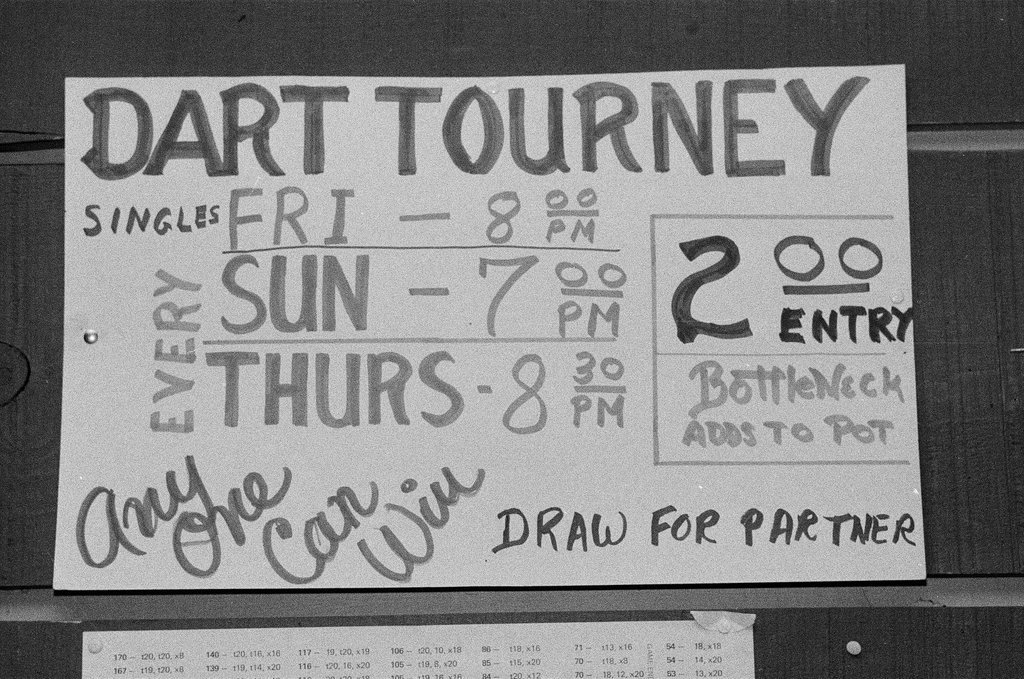 DART TOURNEY
SINGLES FRI - 8 00 PM
EVERY
SUN - 7 00 PM
THURS - 8 30 PM
2 00 ENTRY
BOTTLENECK
ADDS TO POT
Any One Can Win
DRAW FOR PARTNER
170 – t20, t20, x8 140 – t20, t16, x16 117 – 19, t20, x19 106 – t20, 10, x18 86 – t18, x16 71 – t13, x16 54 – 18, x18
167 – t19, t20, x8 139 – t19, t14, x20 116 – t20, 16, x20 105 – t19, 8, x20 85 – t15, x20 70 – t18, x8 54 – 14, x20
105 – t19, 16, x16 84 – t20, x12 70 – 18, 12, x20 53 – 13, x20